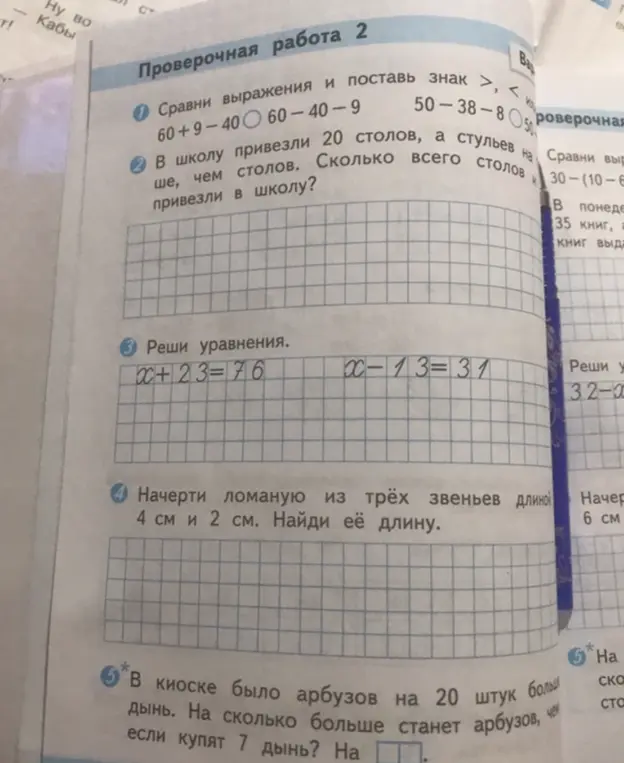 Ну во
— Кабы
Проверочная работа 2
1 Сравни выражения и поставь знак >, <
60 + 9 − 40 ○ 60 − 40 − 9 50 − 38 − 8 ○
2 В школу привезли 20 столов, а стульев на
ше, чем столов. Сколько всего столов
привезли в школу?
3 Реши уравнения.
x + 23 = 76 x − 13 = 31
4 Начерти ломаную из трёх звеньев длиной
4 см и 2 см. Найди её длину.
5* В киоске было арбузов на 20 штук больше
дынь. На сколько больше станет арбузов, чем
если купят 7 дынь? На .
роверочная
Сравни выр
30 − (10 − 6
В понеде
35 книг,
книг выда
Реши у
32 − x
Начер
6 см
5* На
ско
сто